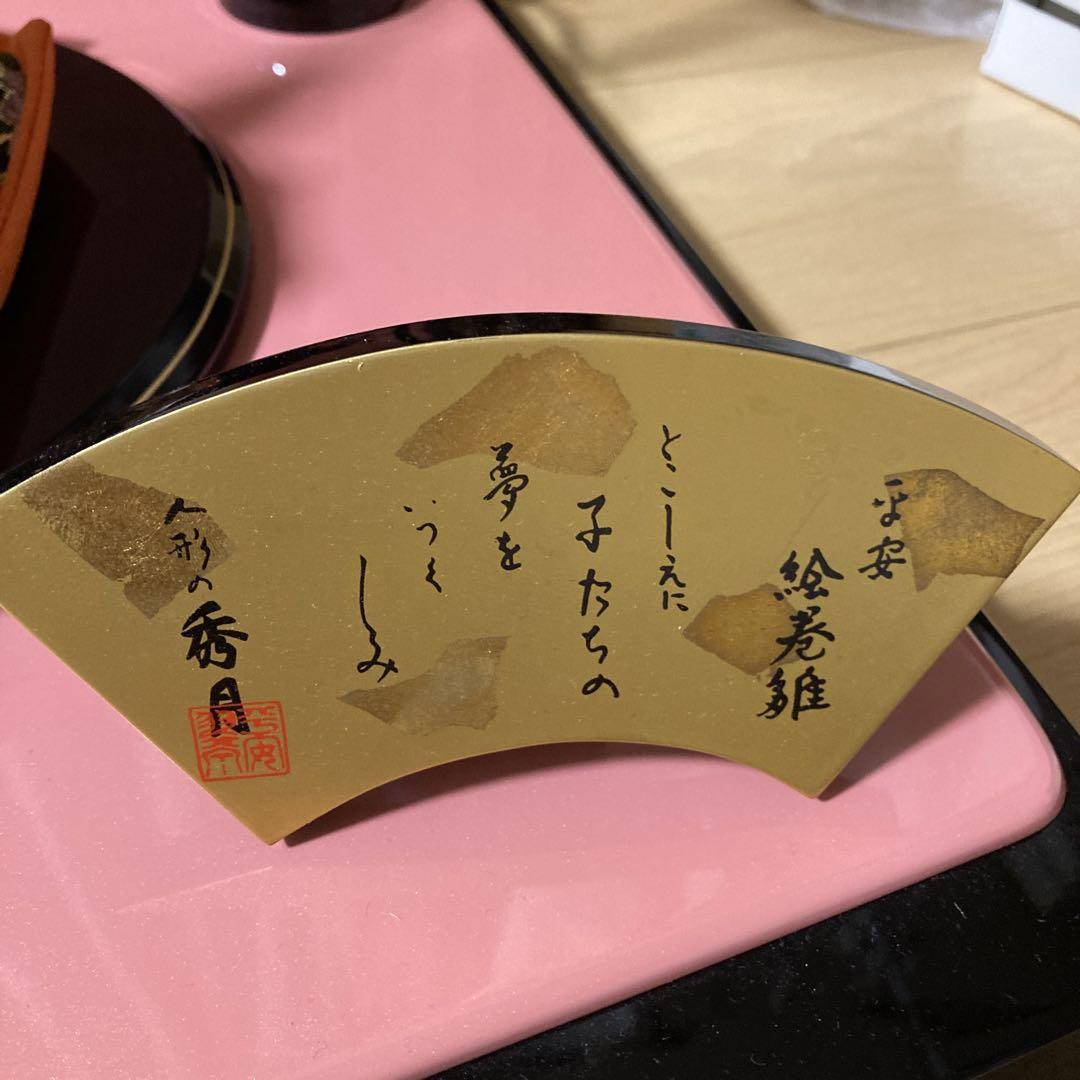 平安
絵巻雛
とこしえに
子たちの
夢を
いつく
しみ
人形の秀月